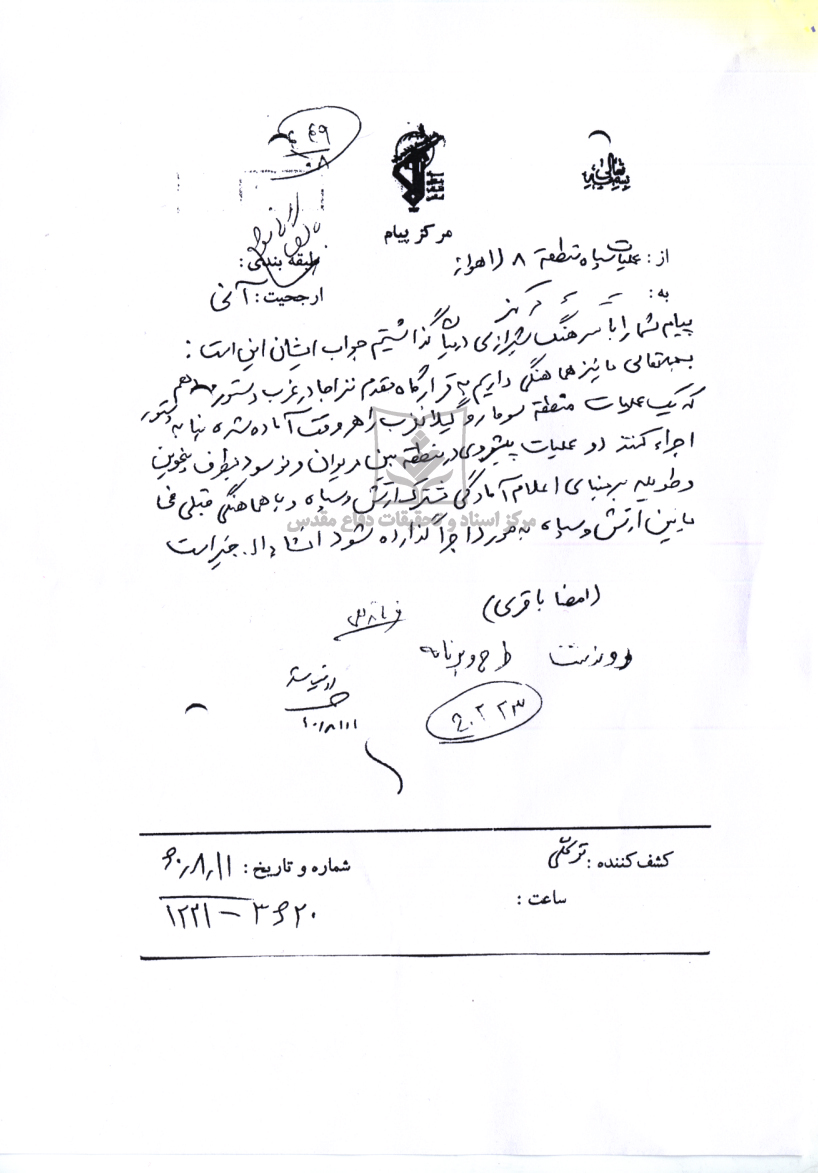 بسمه تعالی
۴۴۹
۰۸
مرکز پیام
از: عملیات سپاه منطقه ۸ (اهواز
طبقه بندی:
به: مرکز
ارجحیت: آنی
پیام شما را با سرهنگ شیرازی در میان گذاشتیم جواب ایشان این است:
بسمه تعالی ما نیز هماهنگی داریم به قرارگاه مقدم نزاجا در غرب دستور هم
که یک عملیات منطقه سومار و گیلانغرب را هر وقت آماده شدند بنا به دستور
اجراء کنند دو عملیات پیشروی در منطقه بین مریوان و نوسود بطرف پنجوین
و طویله بر مبنای اعلام آمادگی مشترک ارتش و سپاه و با هماهنگی قبلی
مابین ارتش و سپاه به مورد اجرا گذارده شود انشاء ا... خیر است
(امضا باقری)
رونوشت طرح و برنامه
۶۰/۸/۱۱
مرکز اسناد و تحقیقات دفاع مقدس
کشف کننده: توکلی
شماره و تاریخ: ۶۰/۸/۱۱
ساعت:
۱۲۲۱ – ۳۶۲۰